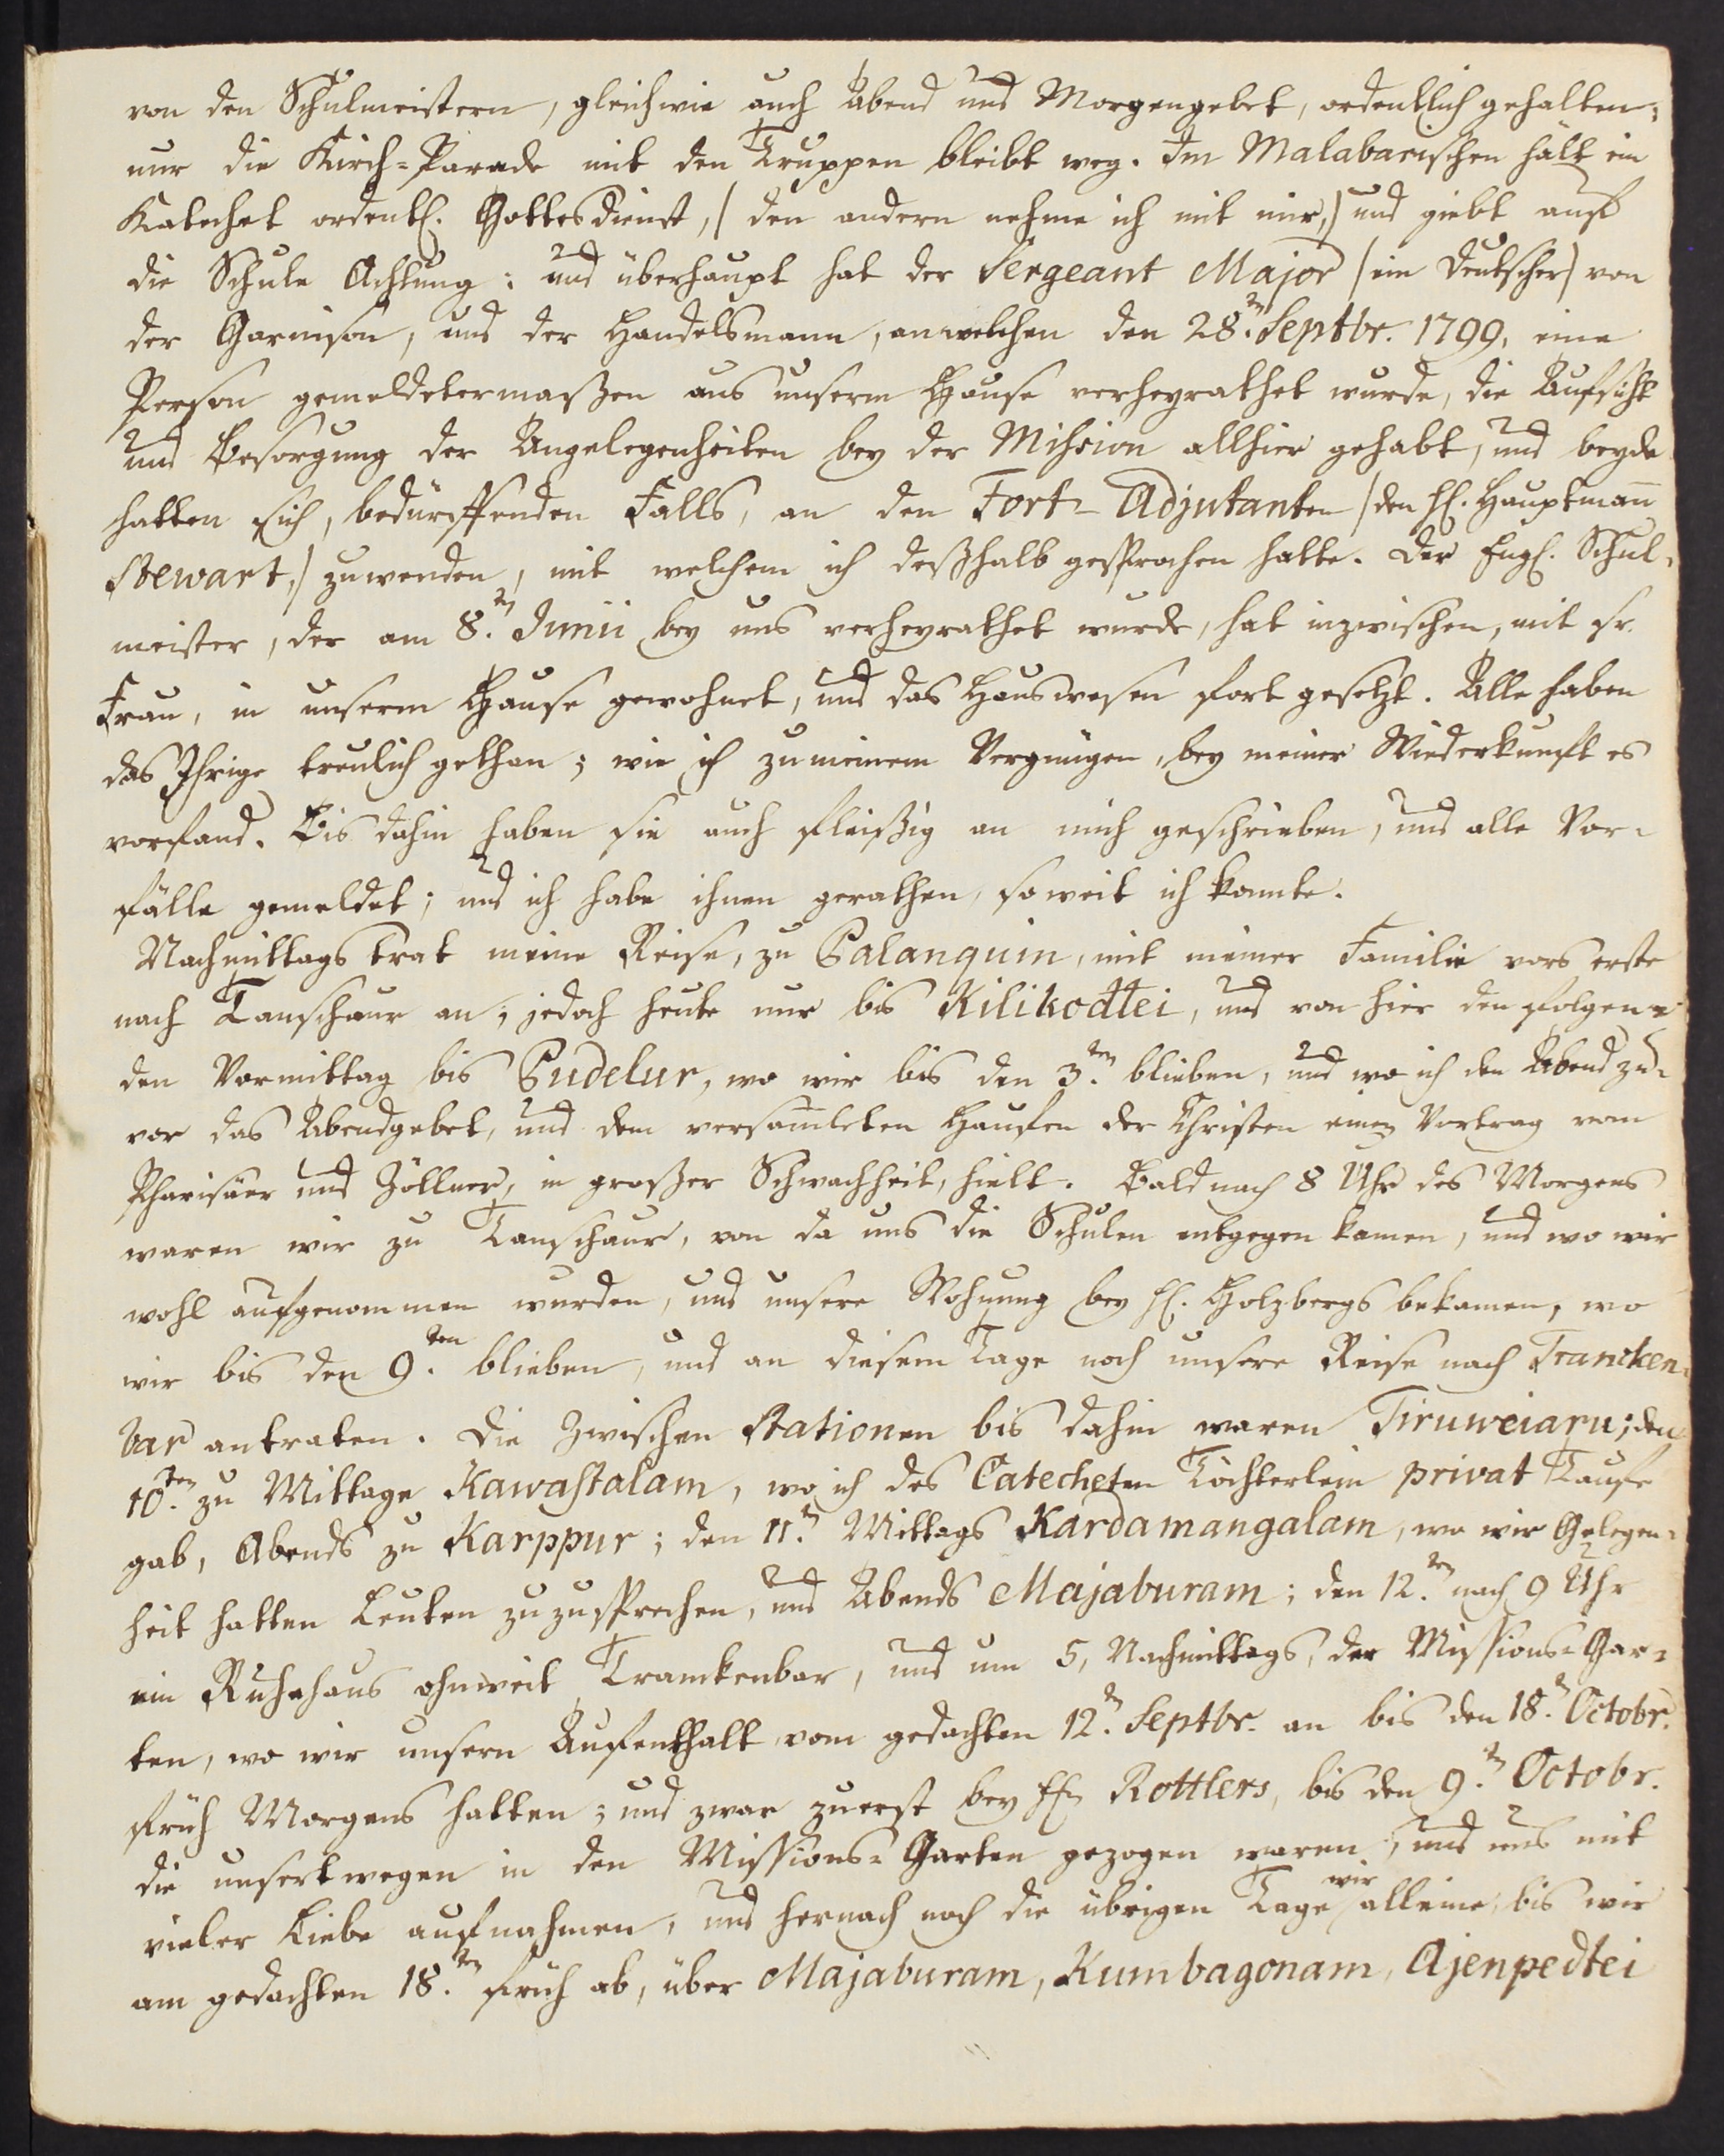 von den Schulmeistern, gleichwie auch Abend und Morgengebet, ordentlich gehalten;
nur die Kirch-Parade mit den Truppen bleibt weg. Im Malabarischen hält ein
Katechet ordentl. Gottesdienst, /: den andern nehme ich mit mir,:/ und giebt auf
die Schule Achtung: und überhaupt hat der Sergeant Major /:ein Deutscher:/ von
der Garnison, und der Handelsmann, an welchen den 28.ten Septbr. 1799, eine
Person gemeldetermaßen aus unserm Hause verheyrathet wurde, die Aufsicht
und Besorgung der Angelegenheiten bey der Mission allhier gehabt, und beyde
hatten sich, bedürffenden Falls, an den Fort-Adjutanten /:den H. Hauptmann
Stewart,:/ zu wenden, mit welchem ich deßhalb gesprochen hatte. Der Engl. Schul-
meister, der am 8.ten Junii bey uns verheyrathet wurde, hat inzwischen, mit sr.
Frau, in unserm Hause gewohnet, und das Hauswesen fort gesetzt. Alle haben
das Ihrige treulich gethan; wie ich zu meinem Vergnügen, bey meiner Wiederkunft es
vorfand. Bis dahin haben sie auch fleißig an mich geschrieben, und alle Vor-
fälle gemeldet; und ich habe ihnen gerathen, so weit ich konnte.
Nachmittags trat meine Reise, zu Palanquin, mit meiner Familie vors erste
nach Tanschaur an, jedoch heute nur bis Kilikodtei, und von hier den folgen-
den Vormittag bis Pudelur, wo wir bis den 3.ten blieben, und wo ich den Abend zu-
vor das Abendgebet, und dem versam̄leten Haufen der Christen einen Vortrag vom
Pharisäer und Zöllner, in großer Schwachheit, hielt. Bald nach 8 Uhr des Morgens
waren wir zu Tanschaur, von da uns die Schulen entgegen kamen, und wo wir
wohl aufgenommen wurden, und unsere Wohnung bey H. Holzbergs bekamen, wo
wir bis den 9.ten blieben, und an diesem Tage noch unsere Reise nach Trancken-
bar antraten. Die Zwischen Stationen bis dahin waren Tiruweiaru; den
10.ten zu Mittage Kawastalam, wo ich des Catecheten Töchterlein privat Taufe
gab, Abends zu Karppur; den 11.ten Mittags Kardamangalam, wo wir Gelegen-
heit hatten Leuten zuzusprechen, und Abends Majaburam; den 12.ten nach 9 Uhr
ein Ruhehaus ohnweit Trankenbar, und um 5, Nachmittags, der Missions-Gar-
ten, wo wir unsern Aufenthalt vom gedachten 12.ten Septbr. an bis den 18.ten Octobr.
früh Morgens hatten; und zwar zuerst bey Hn Rottlers, bis den 9.ten Octobr.
die unsertwegen in den Missions-Garten gezogen waren, und uns mit
vieler Liebe aufnahmen, und hernach noch die übrigen Tage wir alleine, bis wir
am gedachten 18.ten früh ab, über Majaburam, Kumbagonam, Ajenpedtei